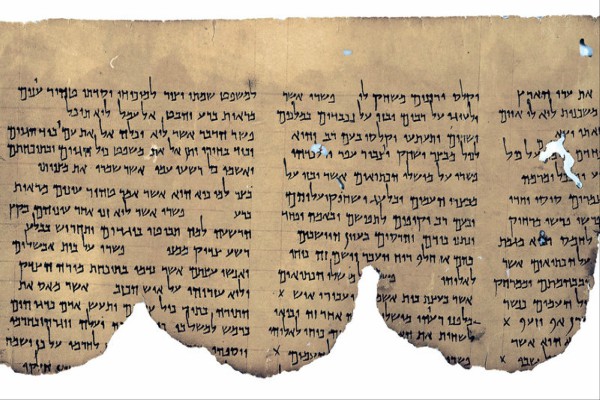 את ערי הארץ
משכנות לוא לו איום
יצא
על כול
ומרמה
סוסו וחדו
פרשו מרחוק
לחמס יבוא מגמת
על הכתיאים אשר
ובבהמתם וממרחק
כול העמים כנשר
אף וזעף
הוא אשר
וקלס ורזנים משחק לו פשרו אשר
ילעיגו על רבים ובזו על נכבדים במלכים
ושרים יתעתעו וקלסו בעם רב והוא
לכול מבצר ישחק ויצבור עפר וילכדהו
פשרו על מושלי הכתיאים אשר יבזו על
מבצרי העמים ובלעג ישחוקו עליהם
ובעם רב יקיפום לתפושם ובאמה ופחד
ינתנו בידם והרסום בעוון היושבים
בהם אז חלף רוח ויעבר וישם זה כוחו
לאלוהו מושלי הכתיאים
אשר בעצת בית אשמ יעבורו איש
מלפני רעיהו מושלי אחר זה יבואו
לשחית את ה כוחו לאלוהו
העמים
למשפט שמתו וצור למוכיחו יסדתו טהור עינים
מראות ברע והבט אל עמל לוא תוכל
פשר הדבר אשר לוא יכלה אל את עמו ביד הגוים
וביד בחירו יתן אל את משפט כול הגוים ובתוכחתם
יאשמו כל רשעי עמו אשר שמרו את מצוותו
בצר למו כיא הוא אשר אמר טהור עינים מראות
ברע פשרו אשר לוא זנו אחר עיניהם בקץ
הרשעה למה תביטו בוגדים ותחריש בבלע
רשע צדיק ממנו פשרו על בית אבשלום
ואנשי עצתם אשר נדמו בתוכחת מורה הצדק
ולוא עזרוהו על איש הכזב אשר מאס את
התורה בתוך כול ותעש אדם כדגי הים
כרמש למשל בו יעלה ויגרהו בחרמו
ויספהו לחרמו על כן ישמח